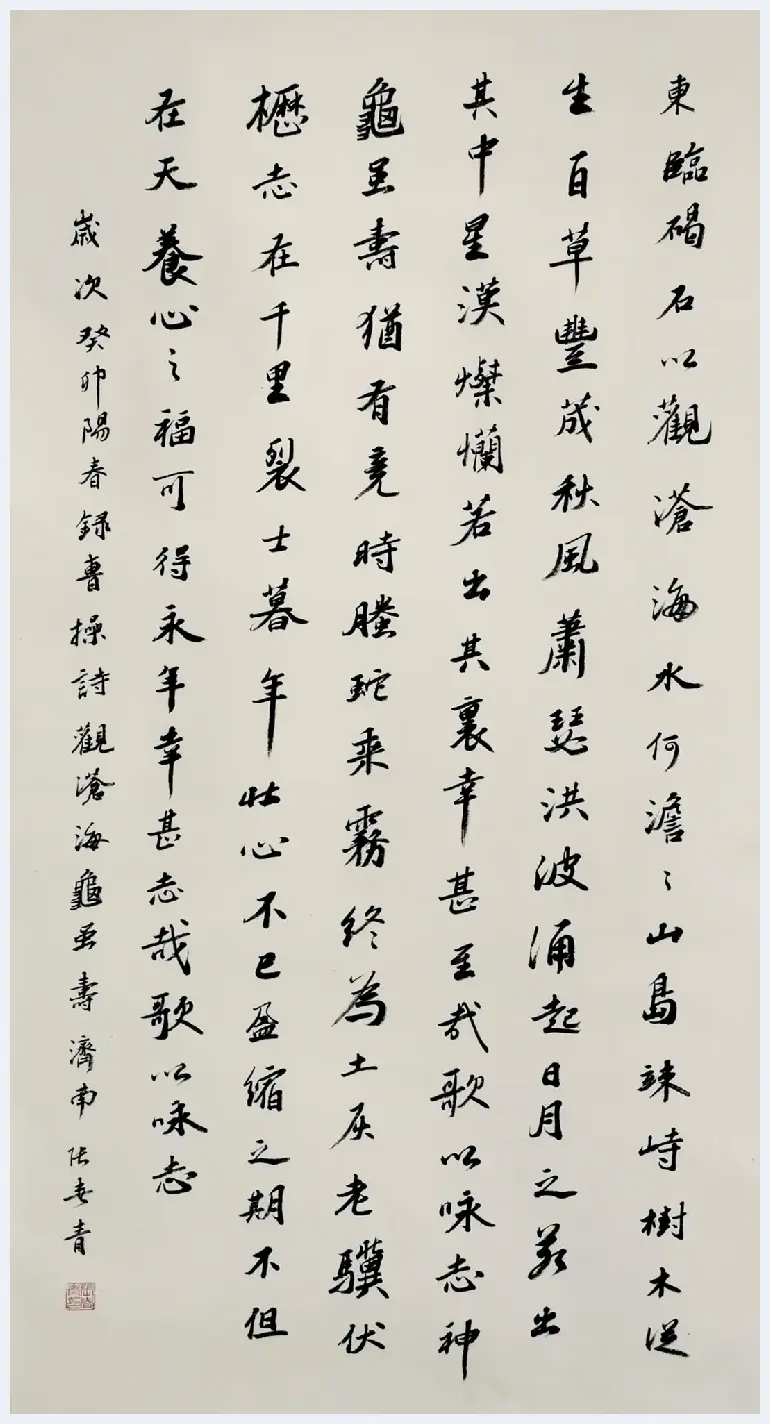 東臨碣石以觀滄海水何澹〻山島竦峙樹木従
生百草豐茂秋風蕭瑟洪波涌起日月之若出
其中星漢燦爛若出其裏幸甚至哉歌以咏志神
龜虽壽猶有竟時螣蛇乘霧終為土灰老驥伏
櫪志在千里裂士暮年壯心不已盈缩之期不但
在天養心之福可得永年幸甚志哉歌以咏志
歲次癸卯陽春録曹操詩觀滄海龜虽壽濟南張春青